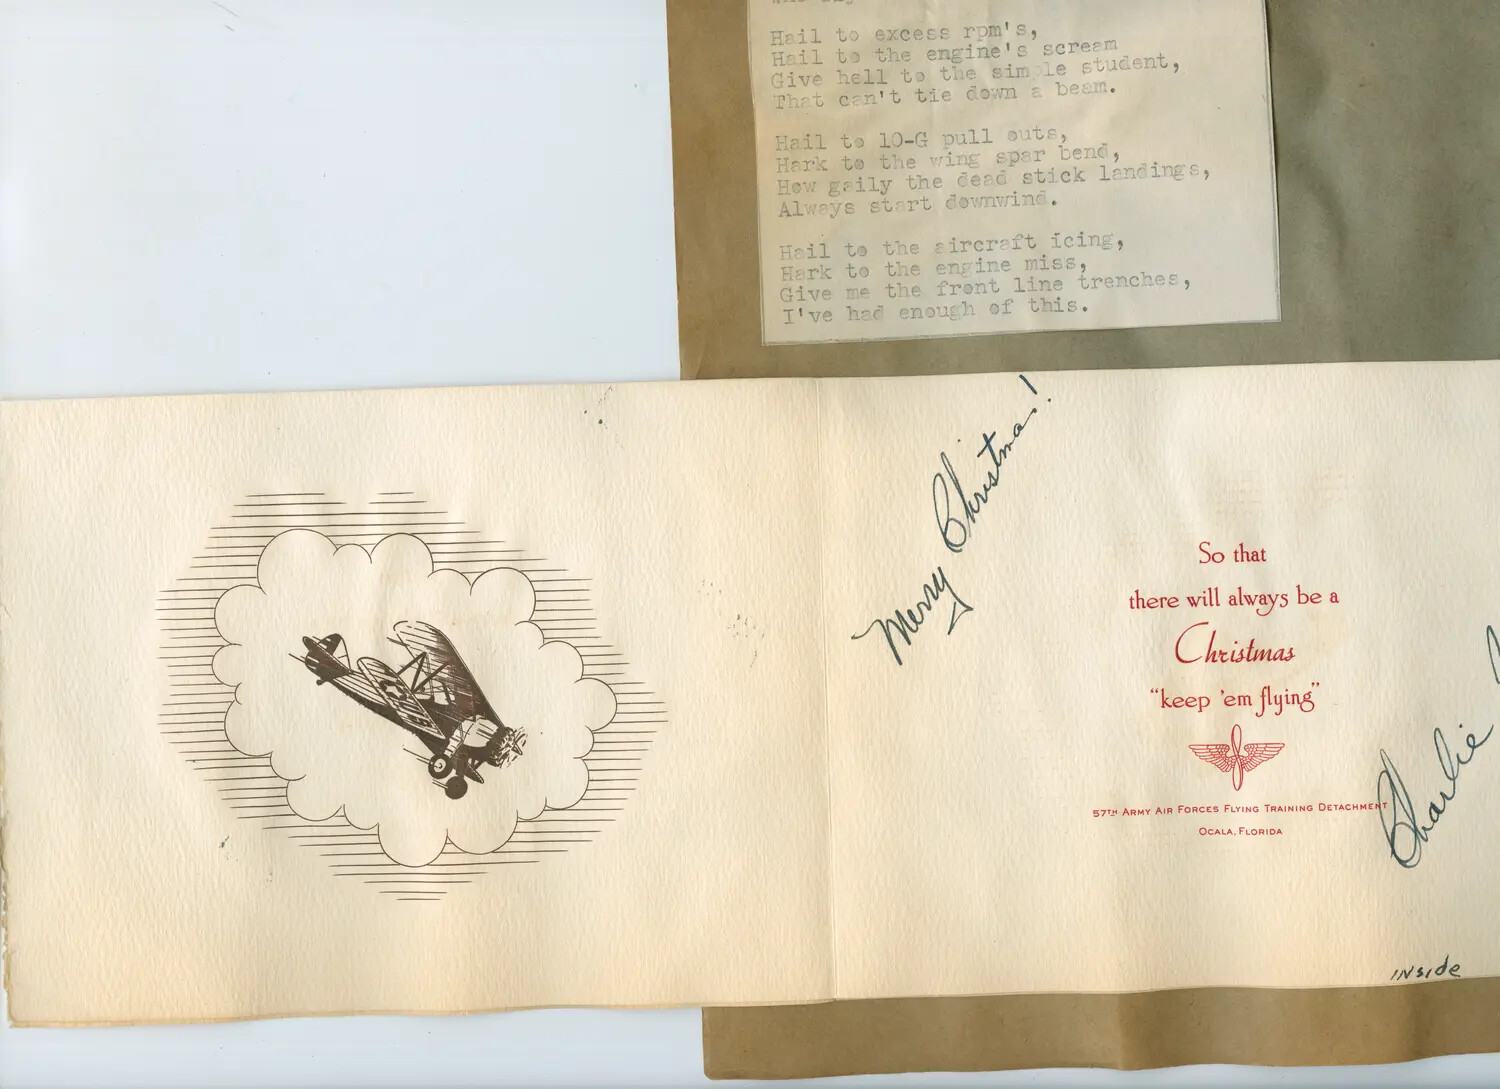 Hail to excess rpm's,
Hail to the engine's scream
Give hell to the simple student,
That can't tie down a beam.
Hail to 10-G pull outs,
Hark to the wing spar bend,
How gaily the dead stick landings,
Always start downwind.
Hail to the aircraft icing,
Hark to the engine miss,
Give me the front line trenches,
I've had enough of this.
Merry Christmas!
So that
there will always be a
Christmas
"keep 'em flying"
57TH ARMY AIR FORCES FLYING TRAINING DETACHMENT
OCALA, FLORIDA
Charlie
INSIDE